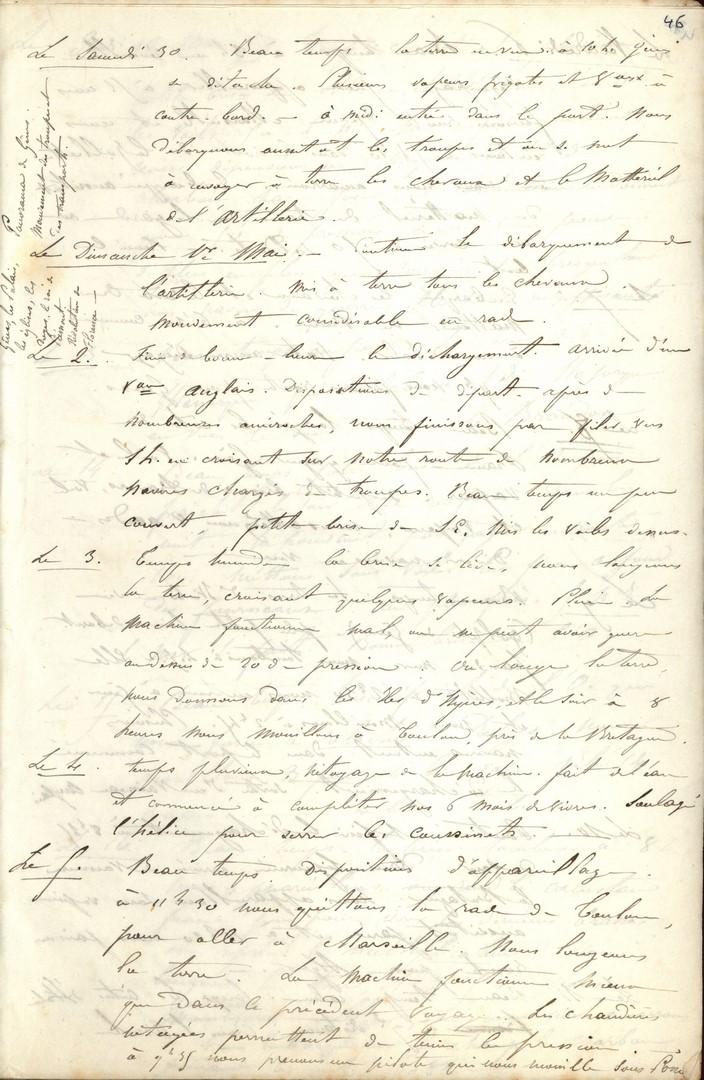 46
Le Samedi 30. Beau temps la terre en vue. à 10h Gênes
se détache. Plusieurs vapeurs frégates et Vaux à
contre-bord. - à midi entrés dans le port. Nous
débarquons aussitôt les troupes et on se met
à envoyer à terre les chevaux et le Matériel
de l'artillerie.
Panorama de Gênes.
Mouvement de transport
des transports.
Le Dimanche 1er Mai. - Continué le débarquement de
l'artillerie. Mis à terre tous les chevaux.
Mouvement considérable en rade.
Gênes, les Palais,
les églises, les
rues, le roi de
Piémont
Révolution de
Florence -
Le 2. Fini de bonne-heure le déchargement. arrivée d'un
Vau anglais. Dispositions de départ. après de
nombreuses anicroches, nous finissons par filer vers
5h. en croisant sur notre route de nombreux
navires chargés de troupes. Beau temps un peu
couvert, petite brise de SE. Mis les voiles dessus.
Le 3. Temps humide la brise se lève, nous longeons
la terre, croisant quelques vapeurs. Pluie. La
machine fonctionne mal, on ne peut avoir guère
au dessus de 20 de pression. On longe la terre,
nous donnons dans les îles d'Hyères, et le soir à 8
heures nous mouillons à Toulon, près de la Bretagne.
Le 4. temps pluvieux, nétoyage de la machine. fait de l'eau
et commencé à compléter nos 6 mois de vivres. Soulagé
l'hélice pour serrer les coussinets.
Le 5. Beau temps. dispositions d'appareillage.
à 11h30 nous quittons la rade de Toulon,
pour aller à Marseille. Nous longeons
la terre. La Machine fonctionne mieux
que dans le précédent voyage. Les chaudières
nétoyées permettent de tenir la pression
à 9h 35 nous prenons un pilote qui nous mouille sous